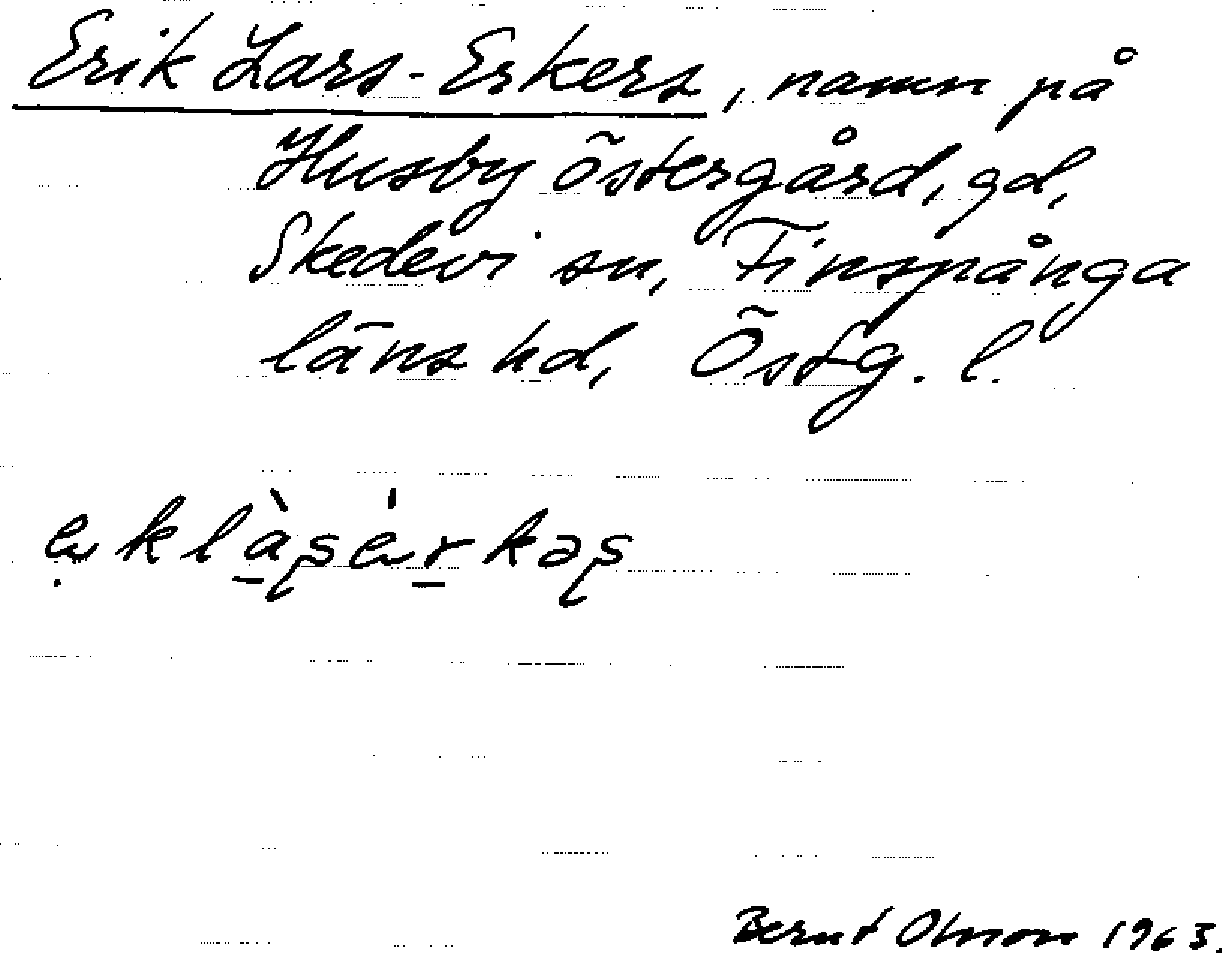 Erik Lars-Erkers, namn på
Husby östergård, gd,
Skedevi sn, Finspånga
läns hd, Östg. l.
Bernt Olsson 1963.